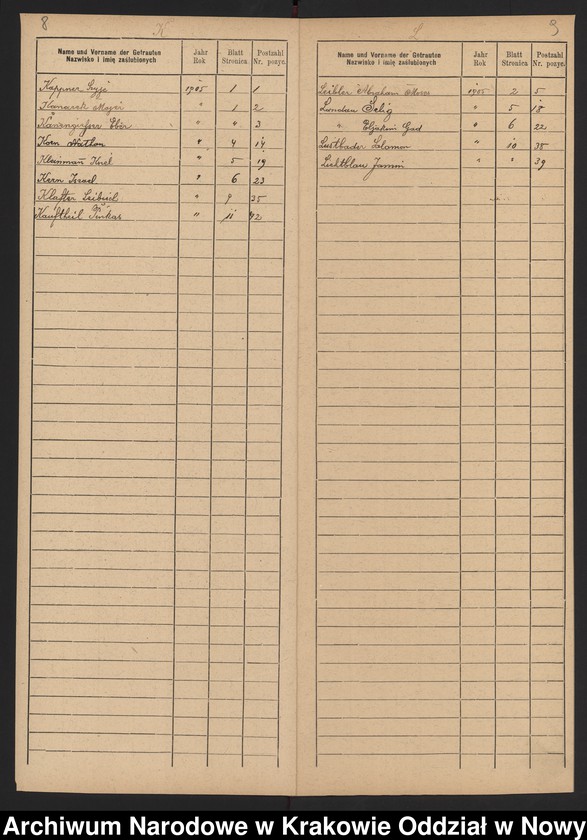 8
K
Name und Vorname der Getrauten
Nazwisko i imię zaślubionych
Jahr
Rok
Blatt
Stronica
Postzahl
Nr. pozyc.
Kappner 1905 1 1
Kanarek " 1 2
" " 3
Korn Nathan " 4 14
Kleinmann " 5 19
Kern Israel " 6 23
Klafter Leibisch " 9 35
Kauftheil Pinkas " 11 42
L
9
Name und Vorname der Getrauten
Nazwisko i imię zaślubionych
Jahr
Rok
Blatt
Stronica
Postzahl
Nr. pozyc.
Leibler Abraham 1905 2 5
Landau Selig " 5 18
" Eljakim " 6 22
Lustbader Salomon " 10 38
Lichtblau " " 39
Archiwum Narodowe w Krakowie Oddział w Nowy